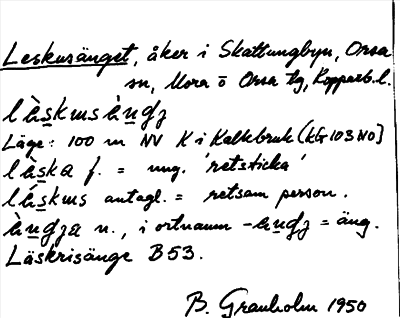 Leskusänget, åker i Skattungbyn, Orsa
sn, Mora o Orsa tg, Kopparb. l.
lä̀skusä̀ŋgʒ
Läge: 100 m NV K i Kalkbruk (KG 103 NO)
lä̀ska f. = ung. 'retsticka'
lä̀skus antagl. = retsam person.
ä̀ŋgʒa n., i ortnamn -äŋgʒ = äng.
Läskrisänge B 53.
B. Granholm 1950